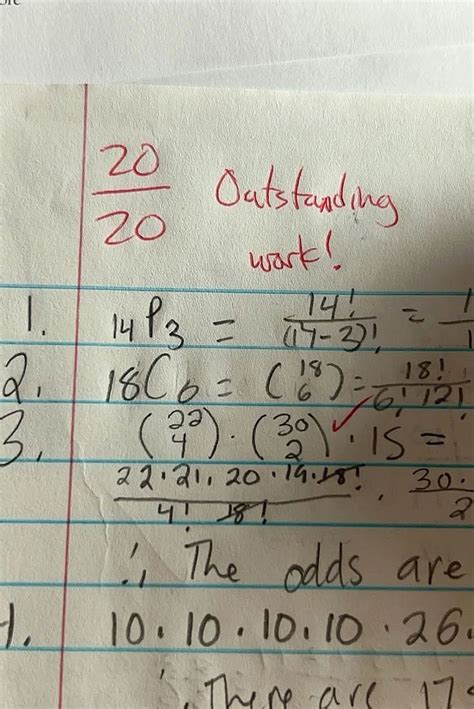 20/20 Outstanding work!
1. 14P3 = 14!/(14-3)! = 1
2. 18C6 = (18 6) = 18!/6! 12!
3. (22 4) · (30 2) · 15 =
22·21·20·19·18!/4! 18! · 30·/2
∴ The odds are
10·10·10·10·26·
∴ There are 17